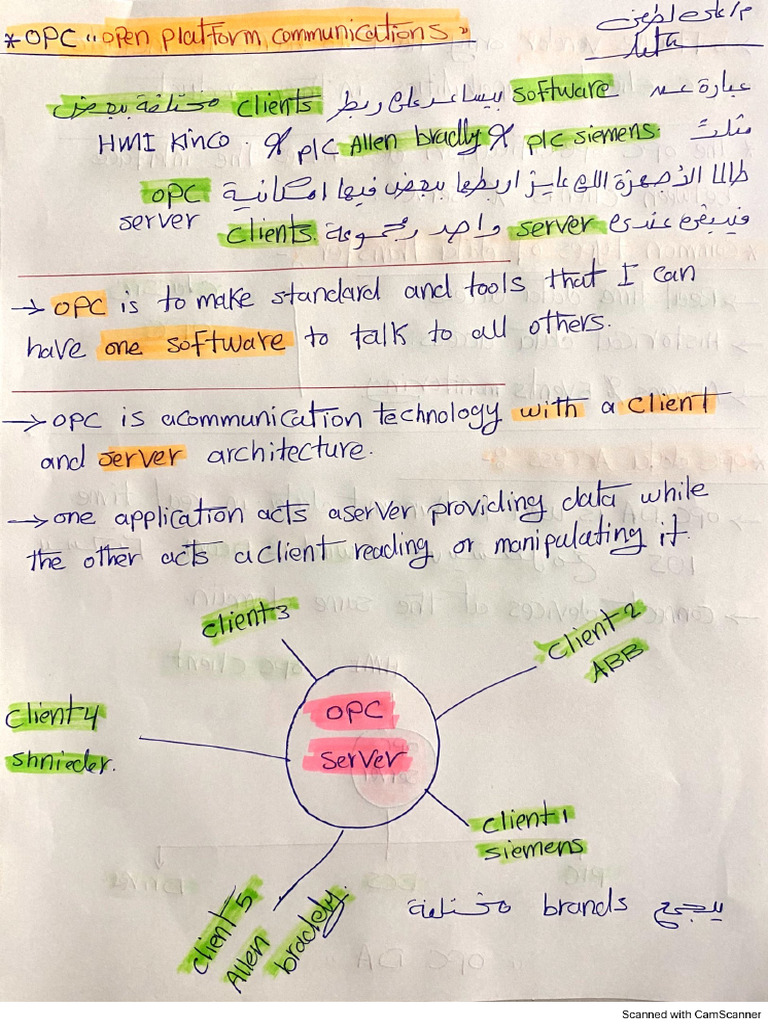 * OPC "open platform communications"
عبارة عن software بيساعد على ربط clients مختلفة ببعض
plc siemens & plc Allen bradly & HMI Kinco.
طالما الأجهزة اللى عايز اربطها ببعض فيها امكانية OPC server
فيبقى عندى server واحد ومجموعة clients.
→ OPC is to make standard and tools that I can
have one software to talk to all others.
→ OPC is acommunication technology with a client
and server architecture.
→ one application acts aserver providing data while
the other acts a client reading or manipulating it.
client 3
client 2
ABB
OPC
server
client 4
shnieder.
client 1
siemens
client 5
Allen
bradely.
بيجمع brands مختلفة
Scanned with CamScanner